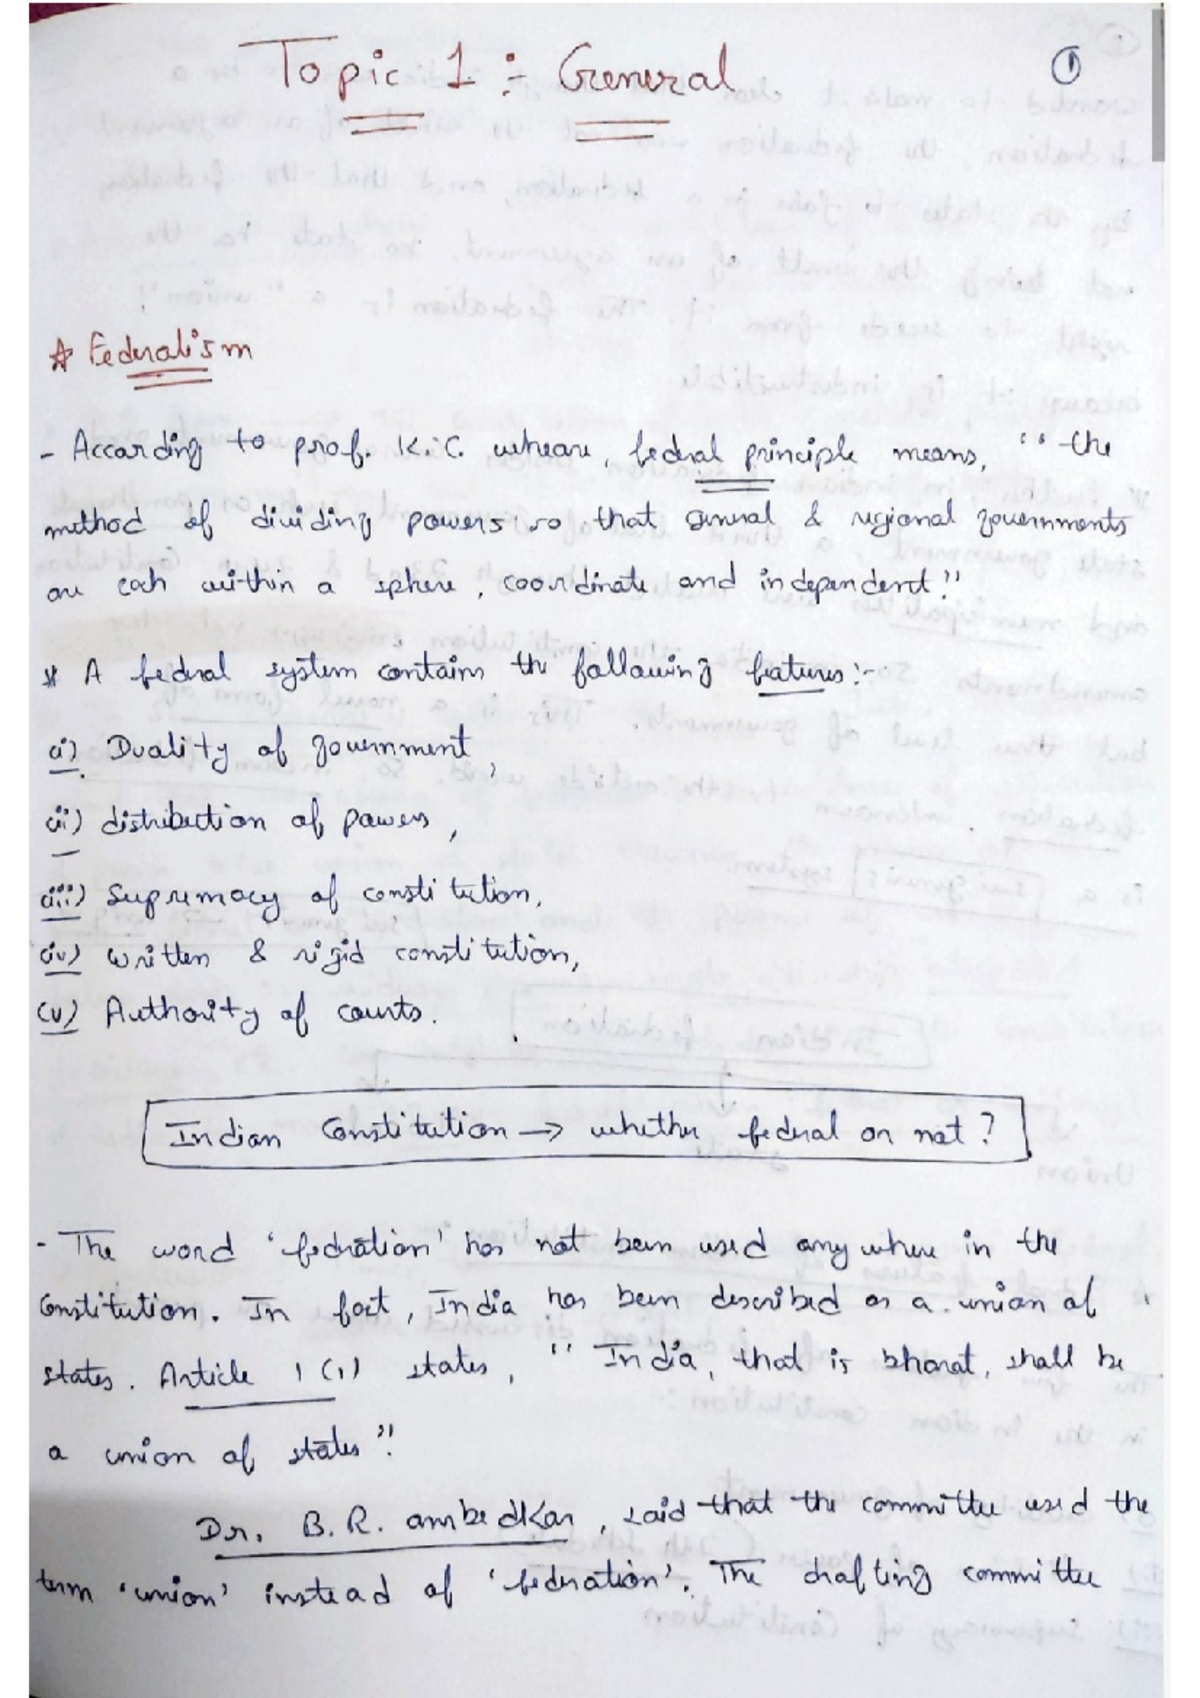 Topic 1 :- General
①
☆ Federalism
- According to prof. K.C. wheare, federal principle means, "the
method of dividing powers so that General & regional governments
are each within a sphere, coordinate and independent."
* A federal system contains the following features:-
(i) Duality of government,
(ii) distribution of powers,
(iii) Supremacy of constitution,
(iv) Written & rigid constitution,
(v) Authority of courts.
Indian Constitution → whether federal or not?
- The word 'federation' has not been used anywhere in the
Constitution. In fact, India has been described as a union of
states. Article 1(1) states, "India, that is bharat, shall be
a union of states".
Dr. B.R. ambedkar, said that the committee used the
term 'union' instead of 'federation'. The drafting committee